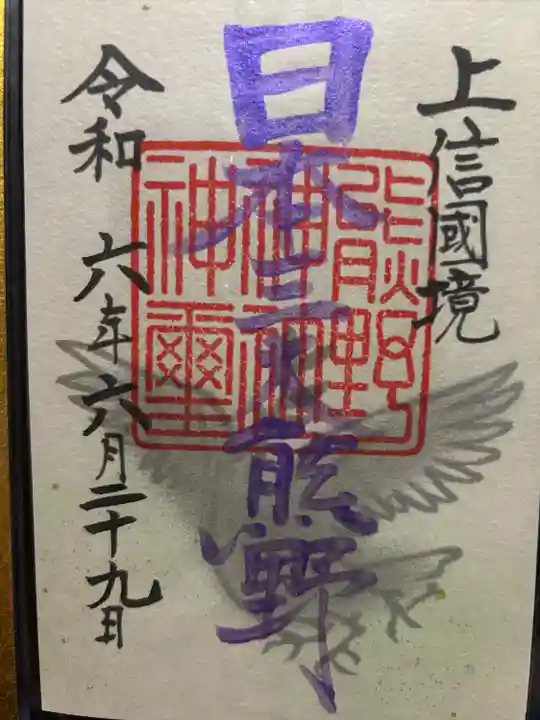 上信國境
日本三大熊野
熊野
神社
神璽
令和 六年 六月二十九日